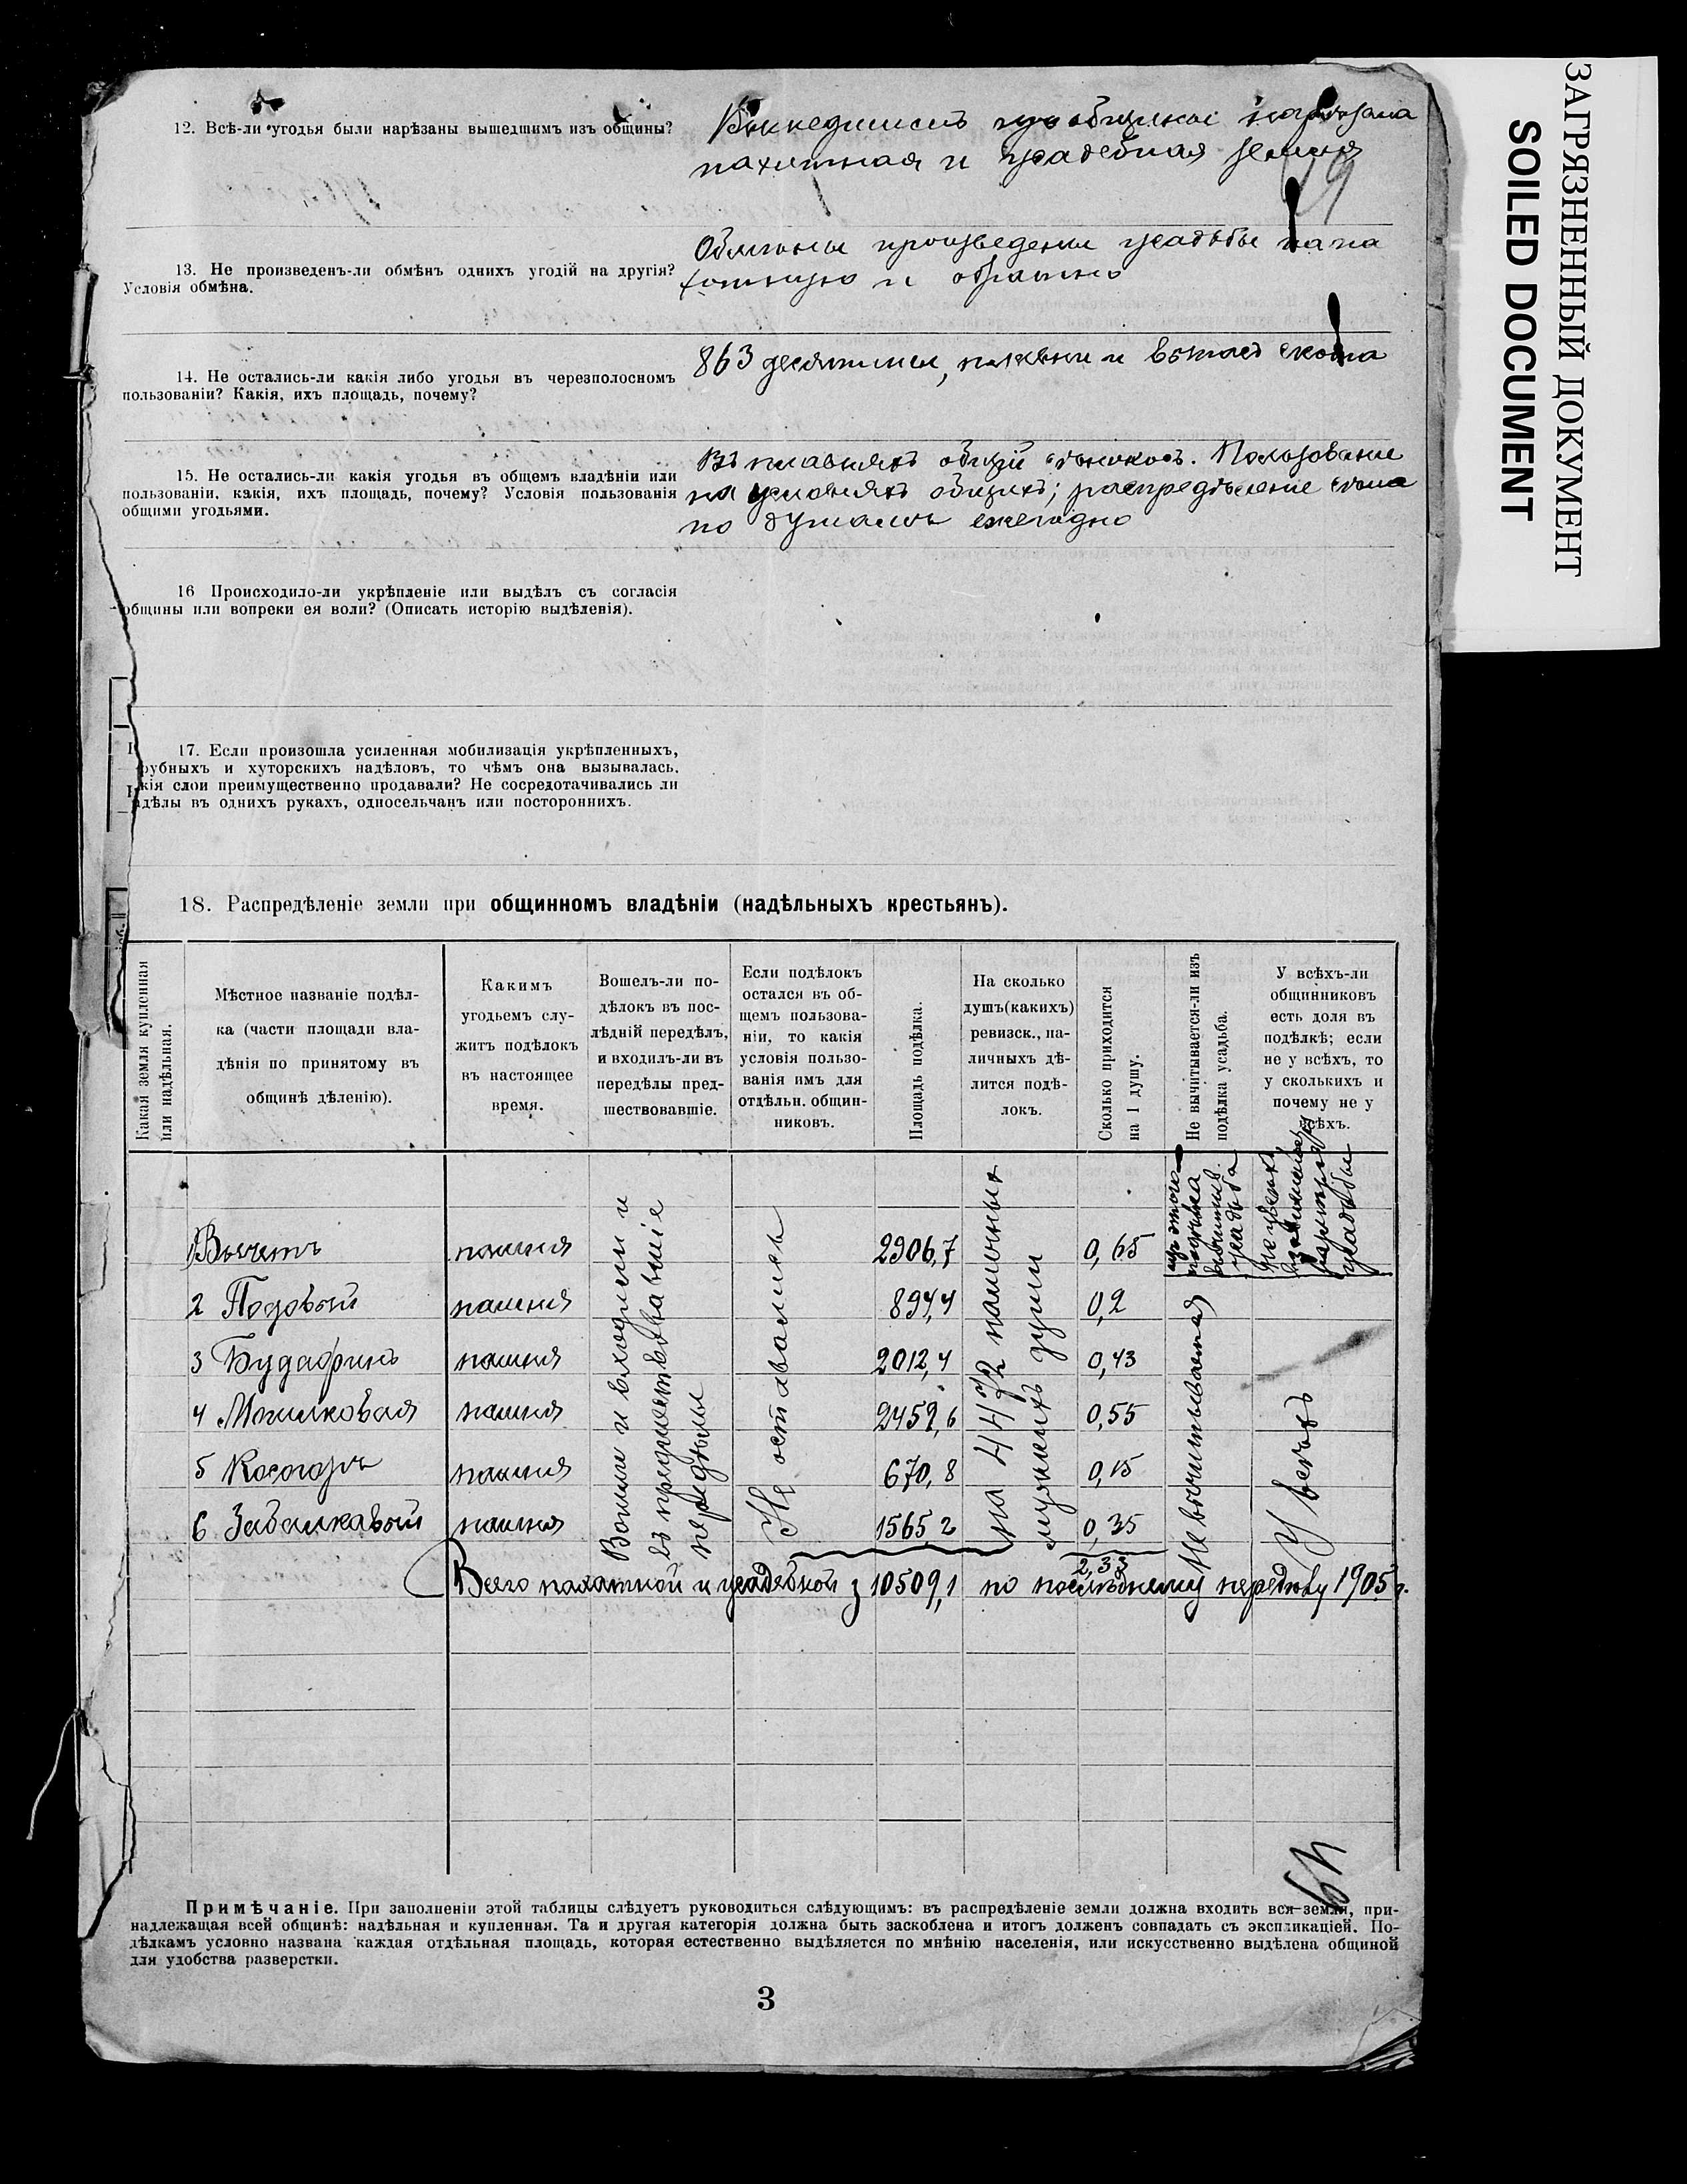 ЗАГРЯЗНЕННЫЙ ДОКУМЕНТ
SOILED DOCUMENT
12. Всѣ-ли угодья были нарѣзаны вышедшимъ изъ общины?
изъ общины нарѣзана
пахатная и усадебная земля
19
13. Не произведенъ-ли обмѣнъ однихъ угодій на другія?
Условія обмѣна.
Обмѣны произведены усадьбы на па
хотную и обратно
14. Не остались-ли какія либо угодья въ черезполосномъ
пользованіи? Какія, ихъ площадь, почему?
863 десятины, плавни и выгонъ скота
15. Не остались-ли какія угодья въ общемъ владѣніи или
пользованіи, какія, ихъ площадь, почему? Условія пользованія
общими угодьями.
Въ плавняхъ общій сѣнокосъ. Пользованіе
на условіяхъ общихъ; распредѣленіе сѣна
по душамъ ежегодно
16 Происходило-ли укрѣпленіе или выдѣлъ съ согласія
общины или вопреки ея воли? (Описать исторію выдѣленія).
17. Если произошла усиленная мобилизація укрѣпленныхъ,
рубныхъ и хуторскихъ надѣловъ, то чѣмъ она вызывалась.
кія слои преимущественно продавали? Не сосредотачивались ли
адѣлы въ однихъ рукахъ, односельчанъ или постороннихъ.
18. Распредѣленіе земли при общинномъ владѣніи (надѣльныхъ крестьянъ).
Какая земля купленная
или надѣльная.
Мѣстное названіе подѣл-
ка (части площади вла-
дѣнія по принятому въ
общинѣ дѣленію).
Какимъ
угодьемъ слу-
житъ подѣлокъ
въ настоящее
время.
Вошелъ-ли по-
дѣлокъ въ пос-
лѣдній передѣлъ,
и входилъ-ли въ
передѣлы пред-
шествовавшіе.
Если подѣлокъ
остался въ об-
щемъ пользова-
ніи, то какія
условія пользо-
ванія имъ для
отдѣльн. общин-
никовъ.
Площадь подѣлка.
На сколько
душъ(какихъ)
ревизск., на-
личныхъ дѣ-
лится подѣ-
локъ.
Сколько приходится
на 1 душу.
Не вычитывается-ли изъ
подѣлка усадьба.
У всѣхъ-ли
общинниковъ
есть доля въ
подѣлкѣ; если
не у всѣхъ, то
у сколькихъ и
почему не у
всѣхъ.
1 пашня 2906,7 0,65
2 Подовый пашня 894,4 0,2
3 пашня 2012,4 0,43
4 пашня 2459,6 0,55
5 Косогоръ пашня 670,8 0,15
6 пашня 1565 2 0,35
Вошли и входили и
въ предшествовавшіе
передѣлы
Не оставались
на 4472 наличныхъ
мужскихъ души
изъ этого
подѣлка
вычитыв.
усадьба
Не вычитывается
усадьбы
У всѣхъ
2,33
Всего пахатной и усадебной з 10509,1 по послѣднему передѣлу 1905 г.
Примѣчаніе. При заполненіи этой таблицы слѣдуетъ руководиться слѣдующимъ: въ распредѣленіе земли должна входить вся земля, при-
надлежащая всей общинѣ: надѣльная и купленная. Та и другая категорія должна быть заскоблена и итогъ долженъ совпадать съ экспликаціей. По-
дѣлкамъ условно названа каждая отдѣльная площадь, которая естественно выдѣляется по мнѣнію населенія, или искусственно выдѣлена общиной
для удобства разверстки.
3